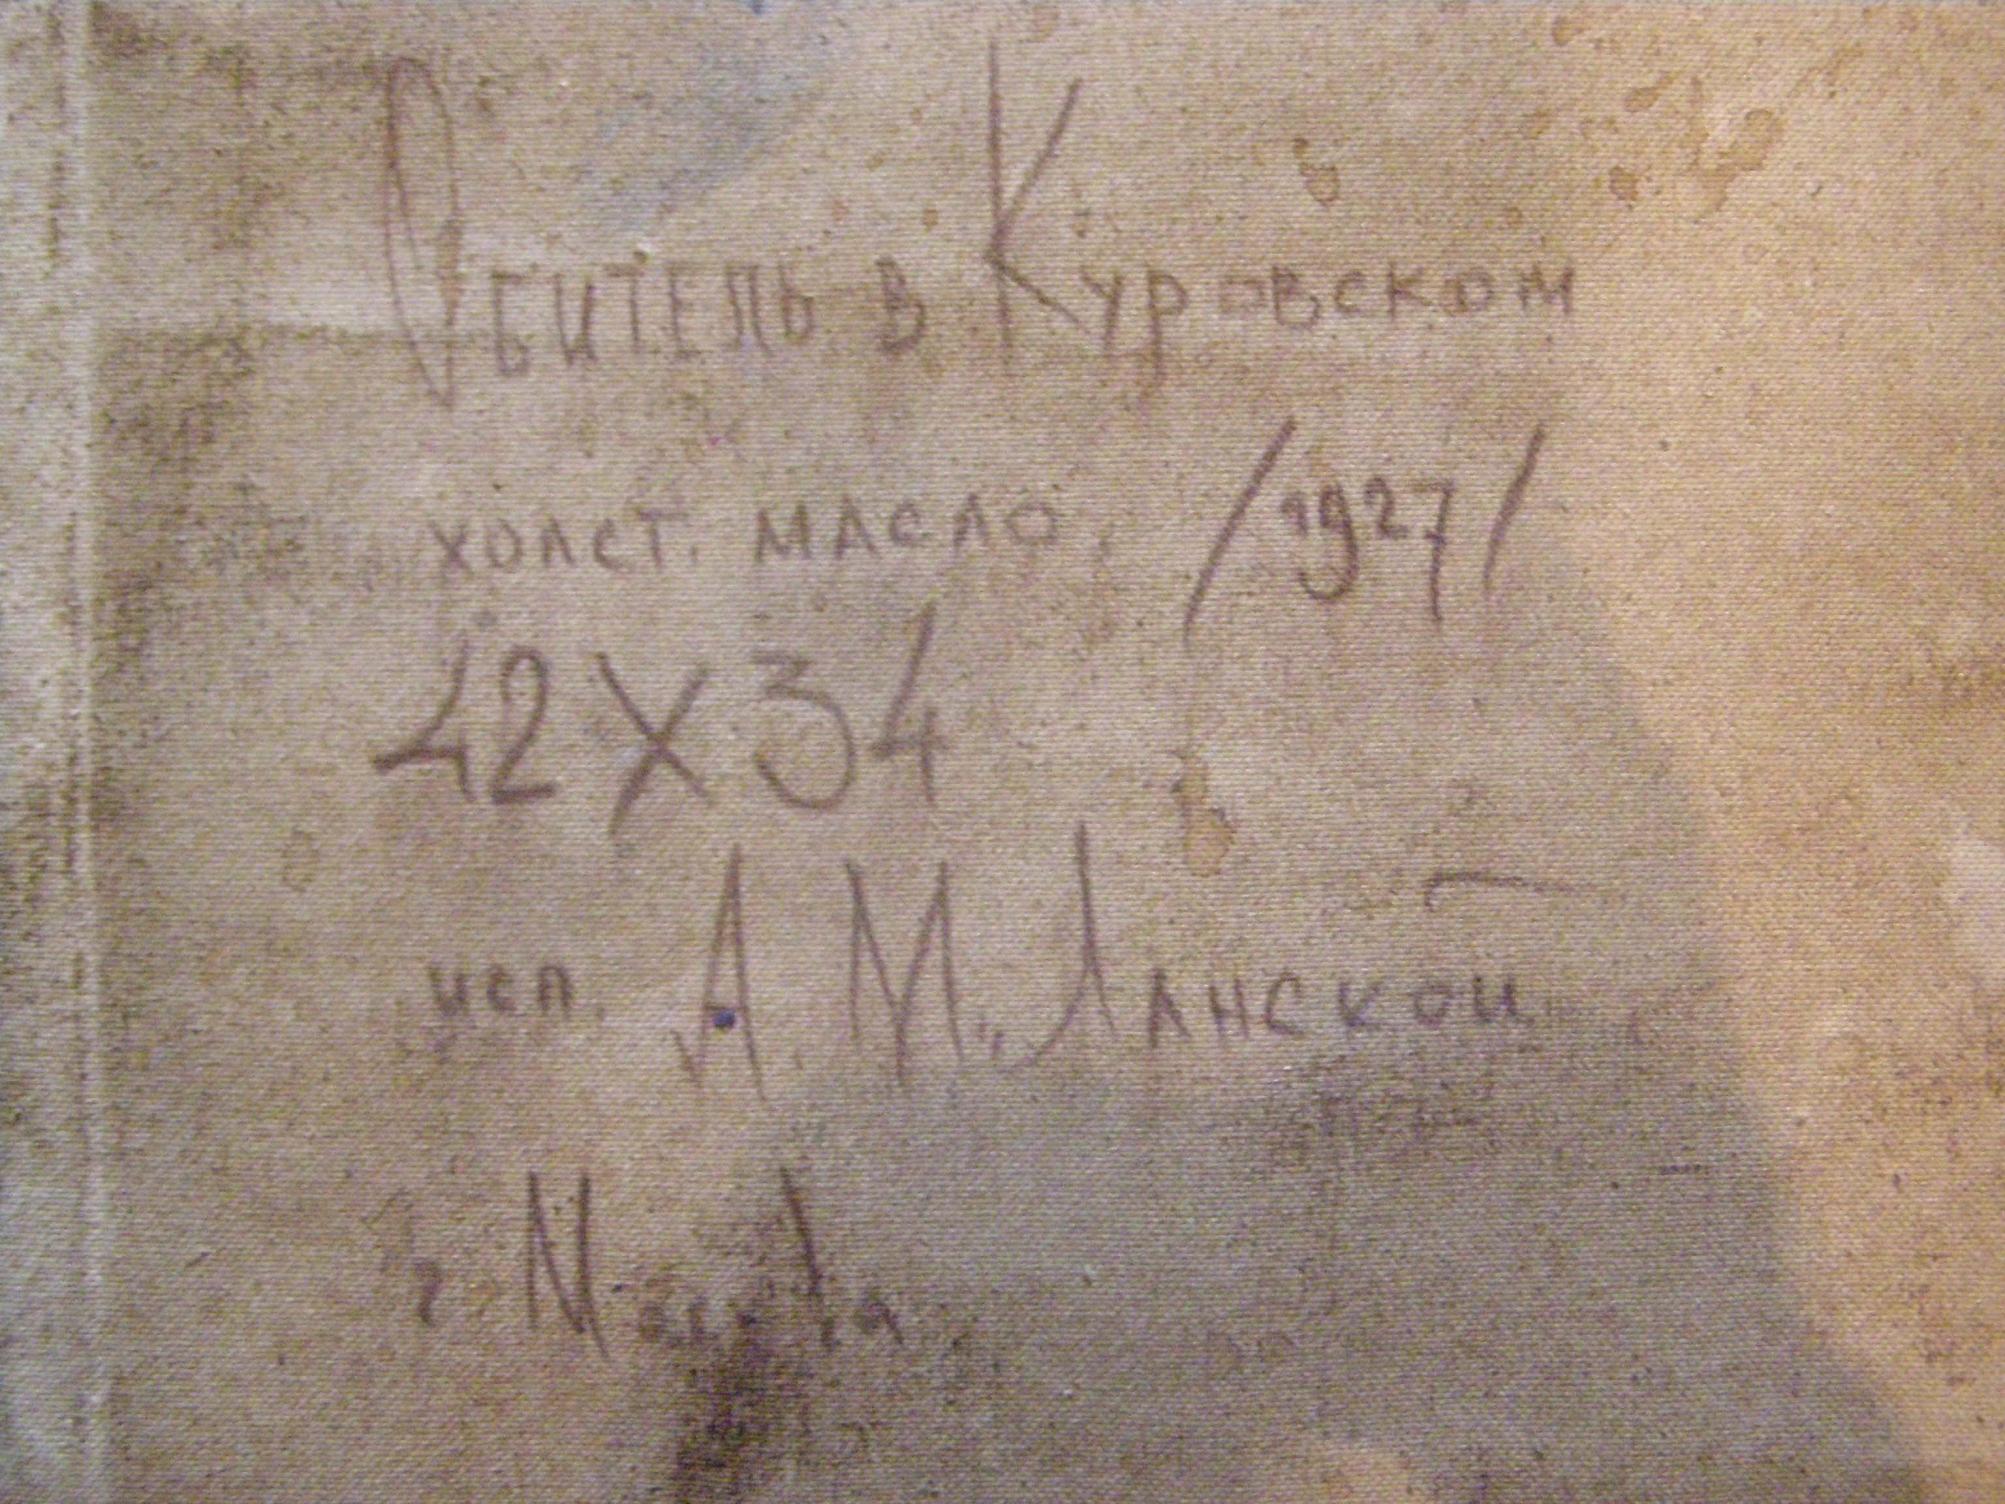 Обитель в Куровском
холст. масло /1927/
42 X 34
исп. А. М. Ланской
г. Москва